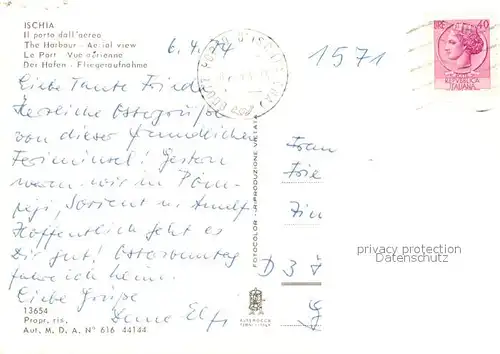 ISCHIA
Il porto dall'aereo
The Harbour - Aerial view
Le Port - Vue aérienne
Der Hafen - Fliegeraufnahme
6.4.74
1571
LIRE 40
REPVBBLICA
ITALIANA
Liebe Tante Frieda
Herzliche Ostergrüße
von dieser freundlichen
Ferieninsel! Gestern
waren wir in Pom-
peji, Sorrent u. Amalfi
Hoffentlich geht es
Dir gut! Ostersonntag
fahre ich heim.
Liebe Grüße
Deine Elfi
Frau
Frie
D 3
FOTOCOLOR - RIPRODUZIONE VIETATA
privacy protection
datenschutz
13654
Propr. ris.
Aut. M. D. A. N° 616 44144
ALTEROCCA
TERNI - ITALY